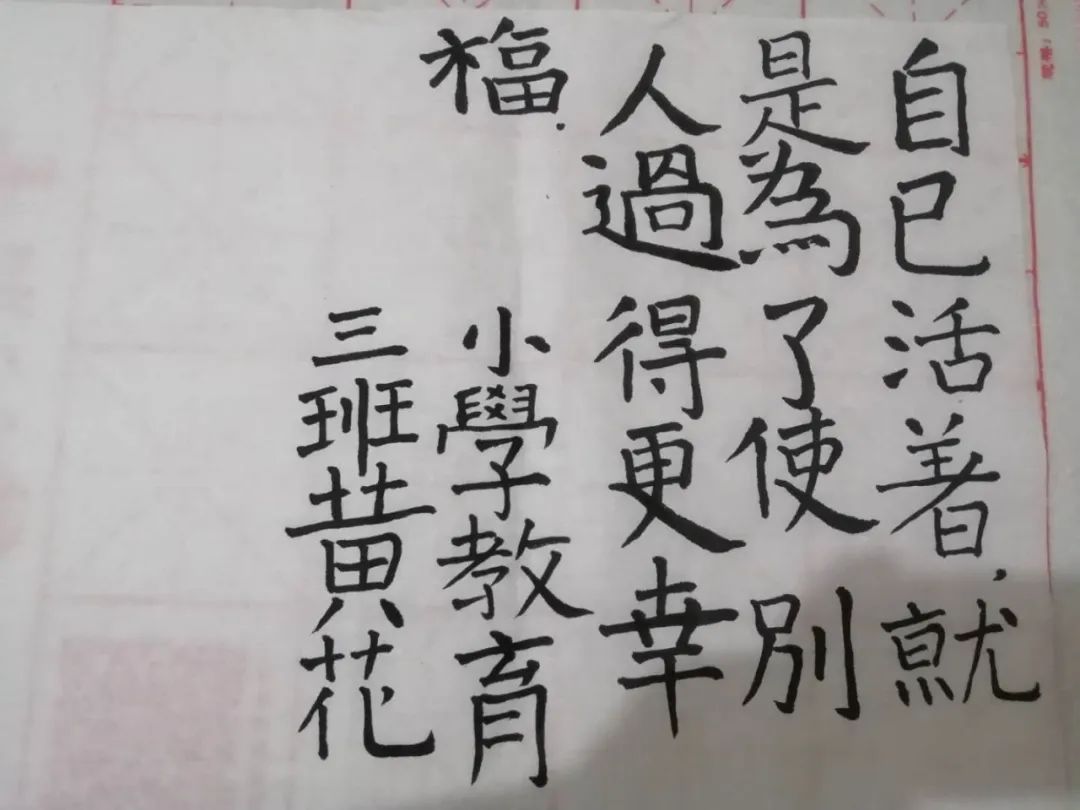 自己活着，就
是為了使别
人過得更幸
福.
小學教育
三班黄花